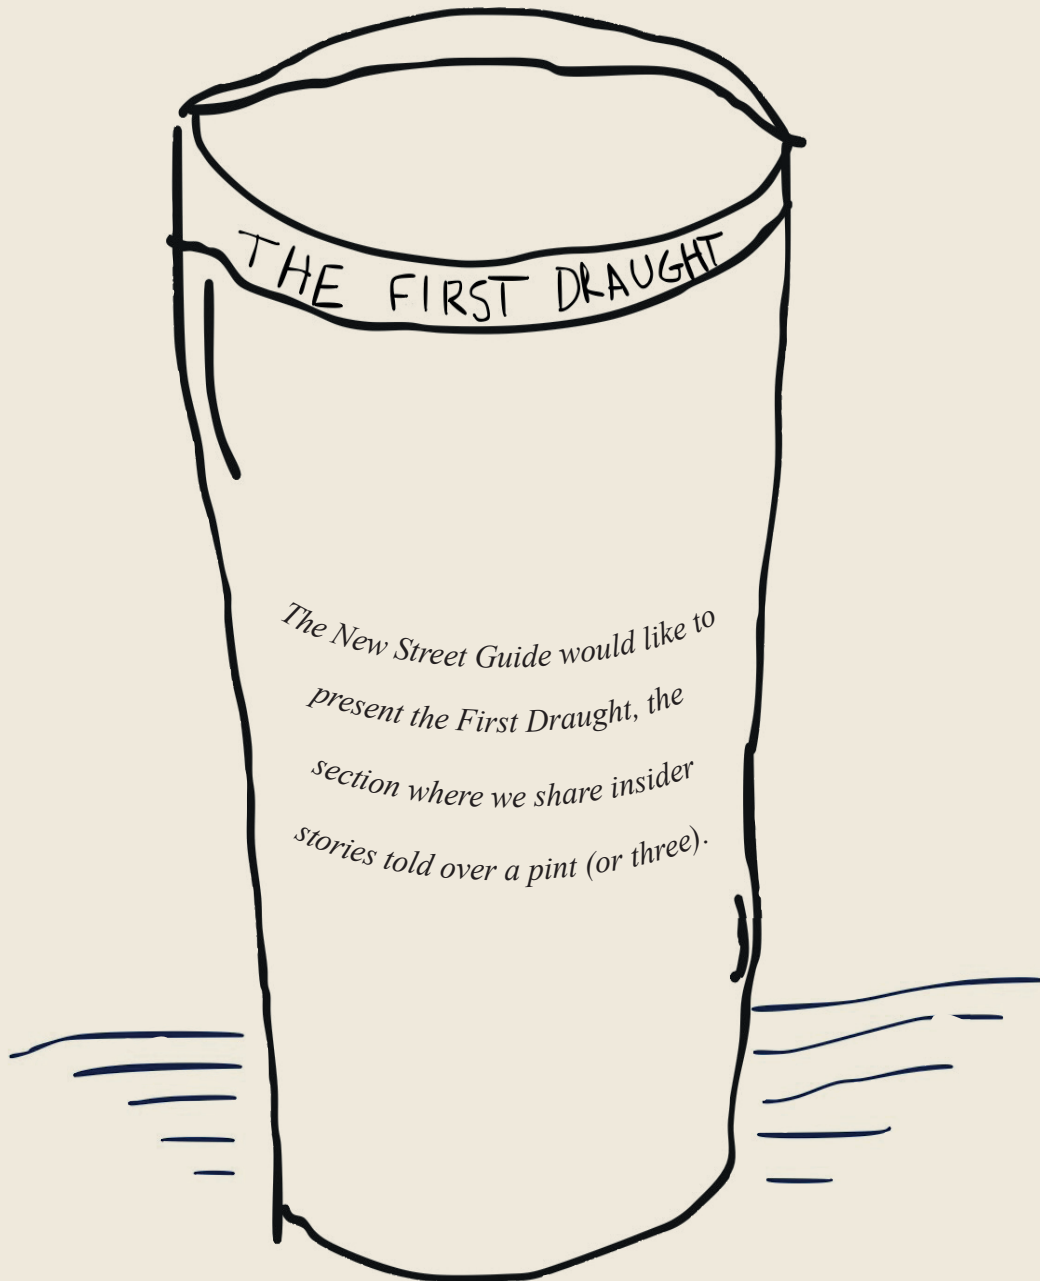 THE FIRST DRAUGHT
The New Street Guide would like to
present the First Draught, the
section where we share insider
stories told over a pint (or three).